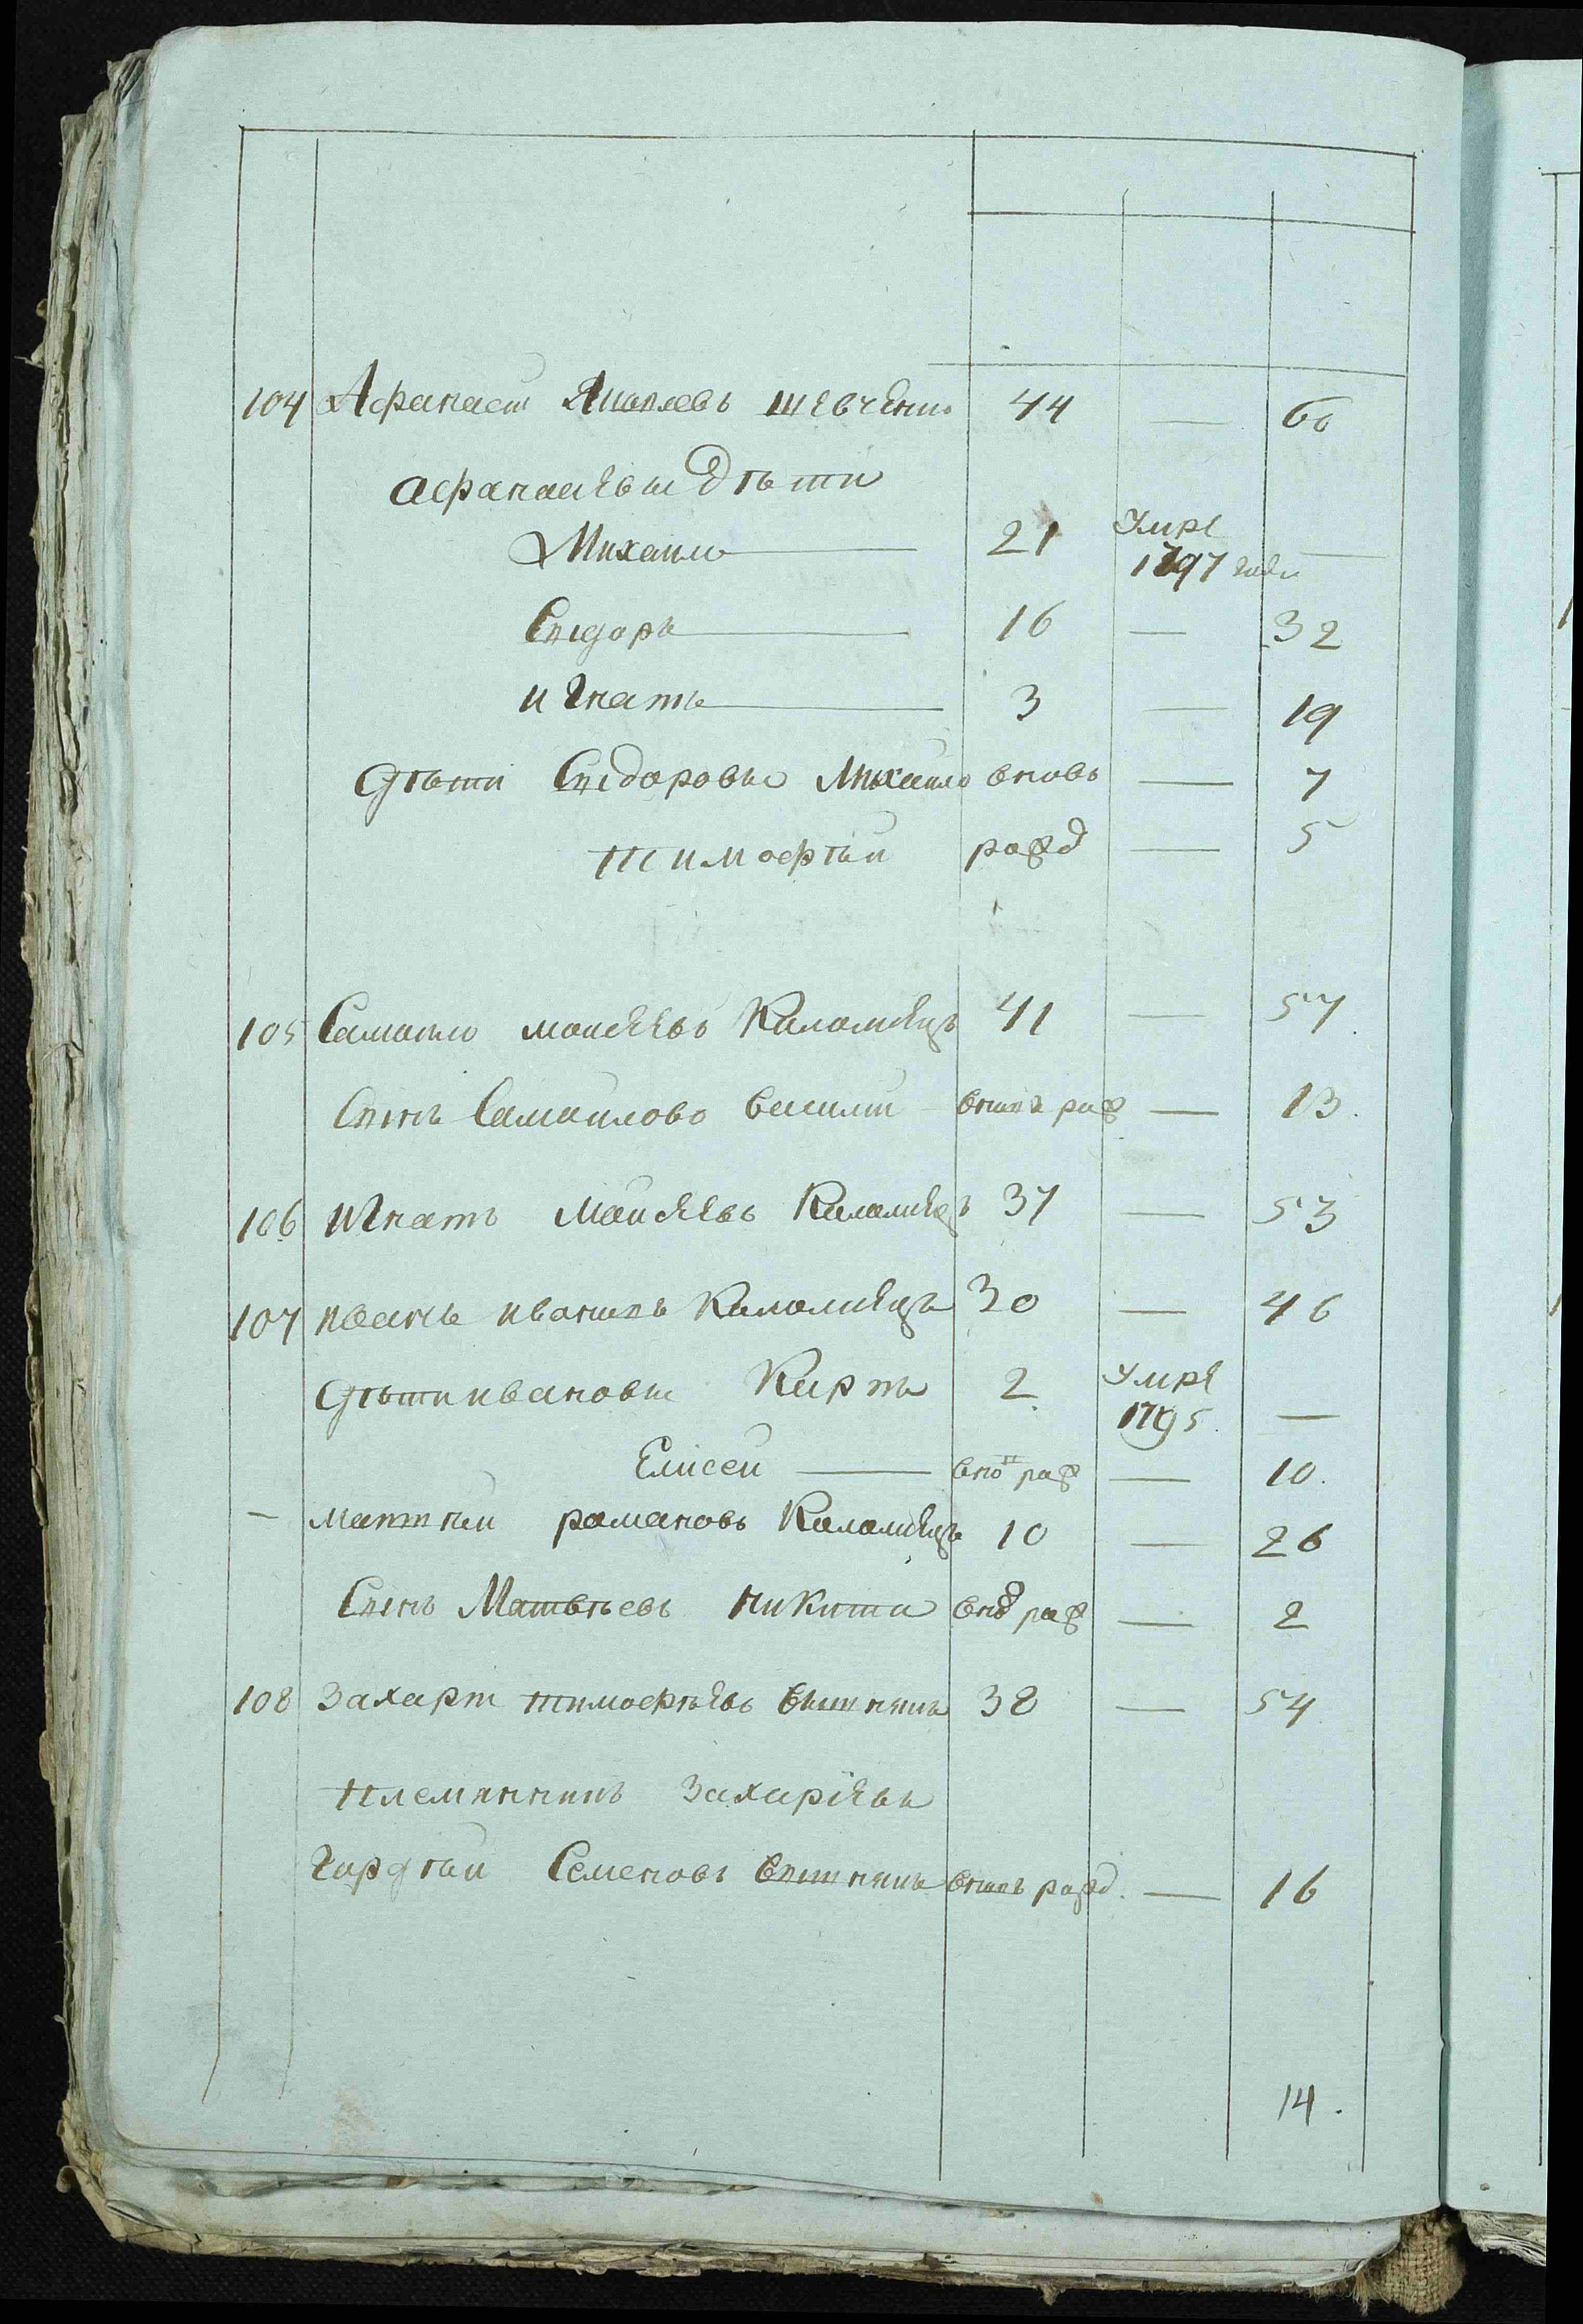 104 Афанасій Яковлевъ шевченко 44 — 60
афанасіевы дѣти
Михайло — 21 Умре — 1797 года
Сидоръ — 16 — 32
игнатъ — 3 — 19
дѣти Сидоровы Михайло вновь — 7
тимофѣй рожд — 5
105 Самойло моисеевъ Каламіецъ 41 — 57.
Сынъ Самойлово василій вновь рож — 13.
106 игнатъ моисеевъ Каламіецъ 37 — 53
107 иванъ ивановъ Каламіецъ 30 — 46
дѣти ивановы Карпъ 2. умре 1795. —
Елисей — вно рож — 10.
— матвѣй романовъ Каламіецъ 10 — 26
Сынъ Матвѣевъ никита вно рож — 2
108 Захарій тимофѣевъ вышнякъ 38 — 54
племянникъ Захаріевъ
гордѣй Семеновъ вышнякъ вновь рожд. — 16
14.